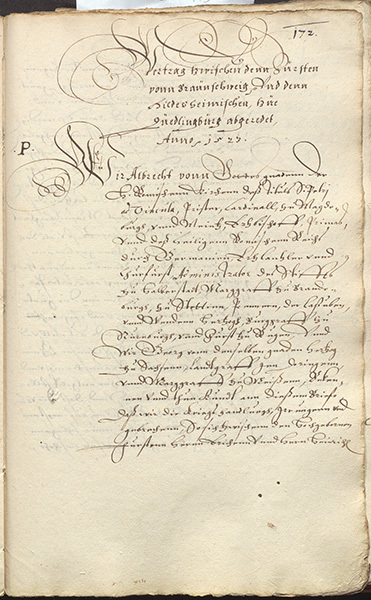 172.
Vertrag zwischen denn Fürsten
vonn Braunschweig, Und denn
Hildesheimischen, zue
Quedlingburg abgeredet
Anno, 1523.
.P.
Wir Albrecht vonn Gottes gnaden der
H. Römischenn Kirchenn deß tituls S: Petrj
ad Vincula, Prister, Cardinall, zu Magde-
burgk, vnnd Maintz Ertzbischoff, Primas,
vnnd deß heiligenn Römischenn Reichs
durch Germanien Ertzcantzler vnnd
Churfürst, Administrator des Stiffts
zu Halberstadt, Marggraff zu Brande-
burgk, zu Stettenn, Pomern, der Caßuben,
vnnd Wenden Hertzogk, Burggraff zu
Nürnbergk, vnnd Fürst zu Rügen, Vnd
Wir Georg vonn denselben gnaden Hertzog
zu Sachsenn, Landtgraff inn Düringenn,
vnnd Marggraff zu Meissenn, Beken-
nen vnnd thun kundt ann dießem Briefe
deß wir die kriegshandlunge, Irrungenn vnd
gebrechenn, So sich zwischenn den Hochgebornen
Fürstenn Herrn Erichenn vnnd Herrn Heinrich